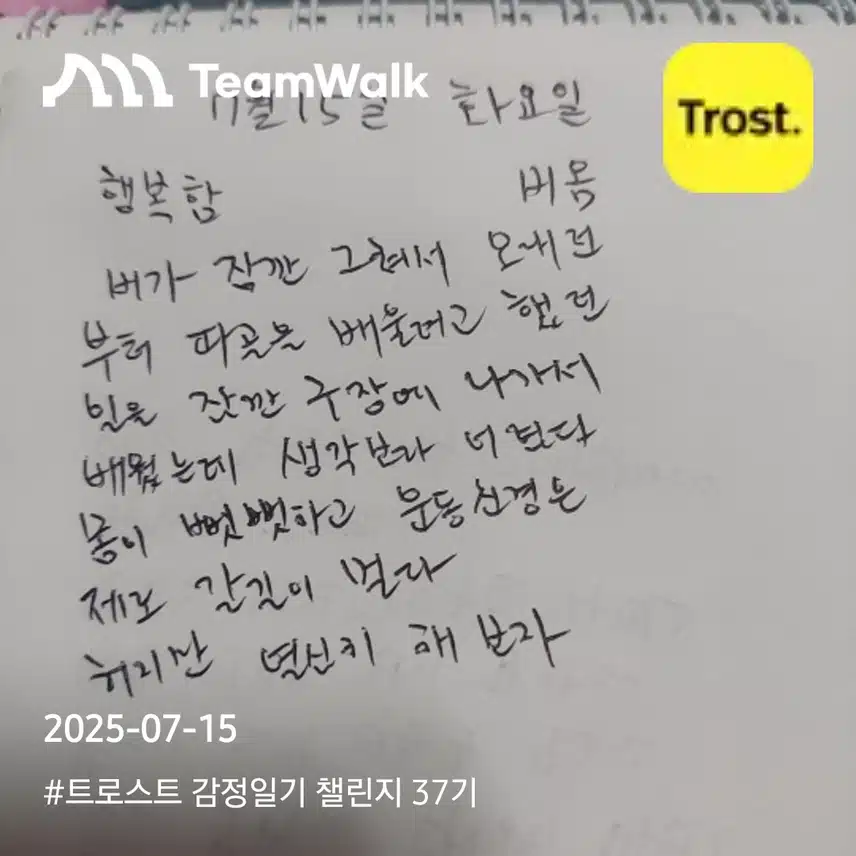 TeamWalk
Trost.
7월 15일 화요일
행복함 비옴
비가 잠깐 그쳐서 오래전
부터 파골을 배울려고 했던
일을 잠깐 구장에 나가서
배웠는데 생각보다
몸이 뻣뻣하고 운동신경은
제로 갈길이 멀다
허지만 열심히 해 보자
2025-07-15
#트로스트 감정일기 챌린지 37기